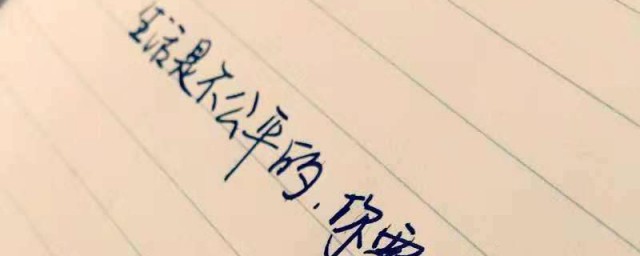 生活是不公平的,你要